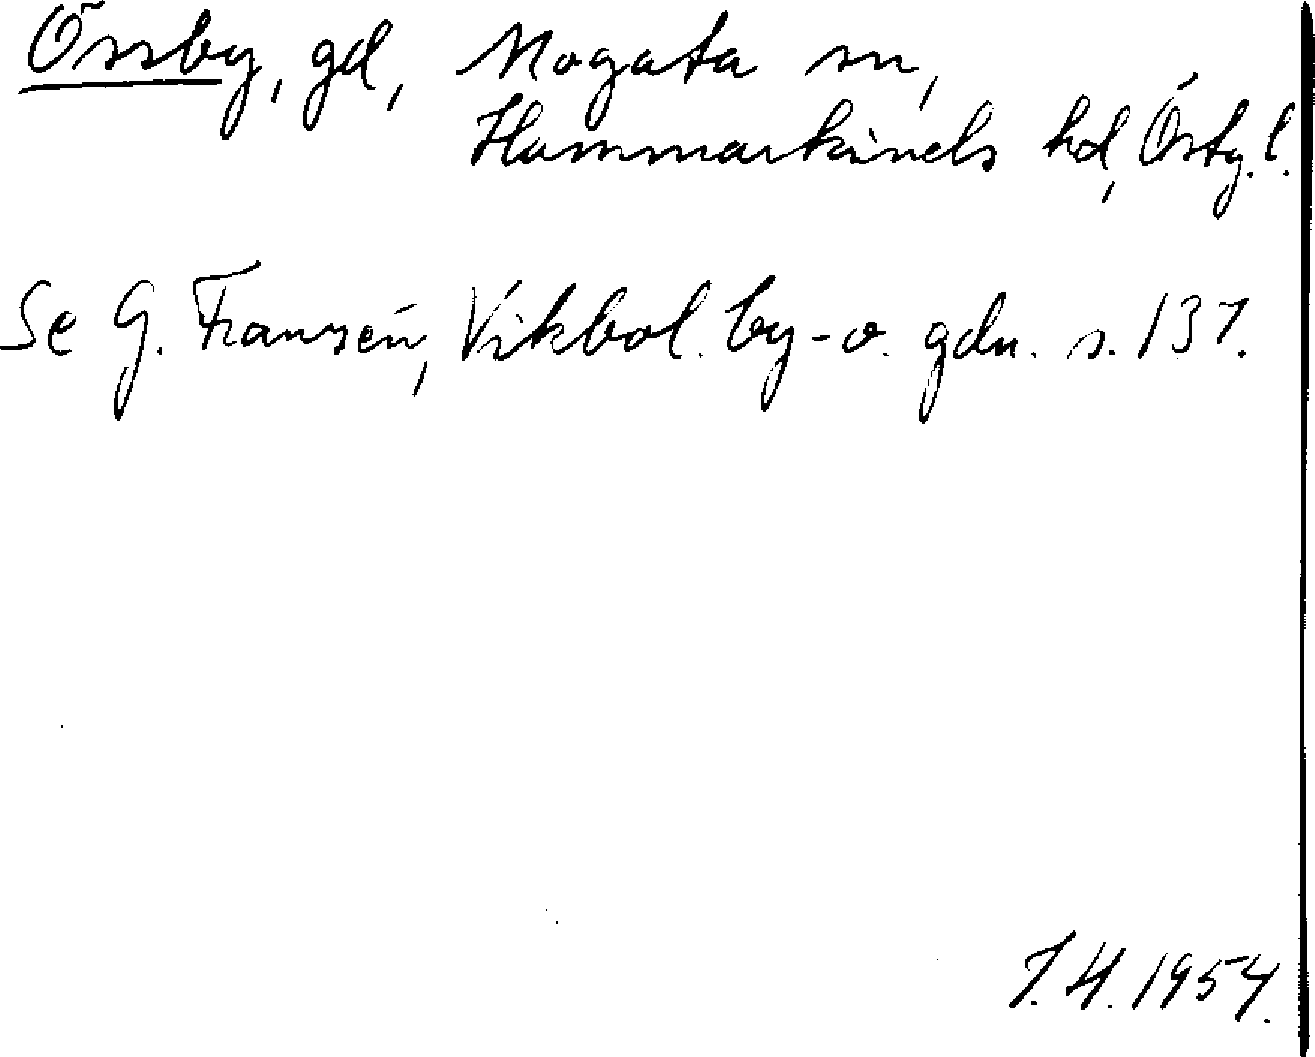 Össby, gd, Mogata sn,
Hammarkinds hd, Östg. l.
Se G. Franzén, Vikbol. by- o. gdn. s. 137.
7.4.1954.